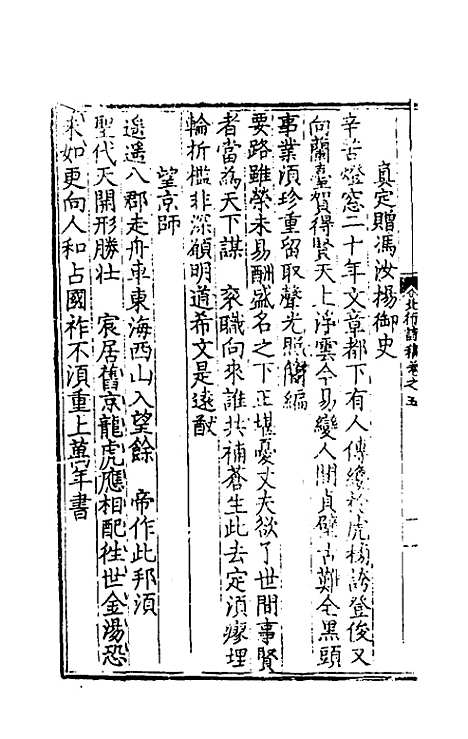 真定贈馮汝楊御史
辛苦燈窓二十年文章都下有人傳纔於虎榜誇登俊又
向蘭臺賀得賢天上浮雲今易變人間貞璧古難全黑頭
事業須珍重留取聲光照簡編
要路雖榮未易酬盛名之下正堪憂丈夫欲了世間事賢
者當為天下謀 袞職向來誰共補蒼生此去定須瘳埋
輪折檻非深願明道希文是遠猷
望京師
遥遥八郡走舟車東海西山入望餘 帝作此邦須
聖代天開形勝壯 宸居舊京龍虎應相配徃世金湯恐
未如更向人和占國祚不須重上萬年書
北行詩稿卷之五